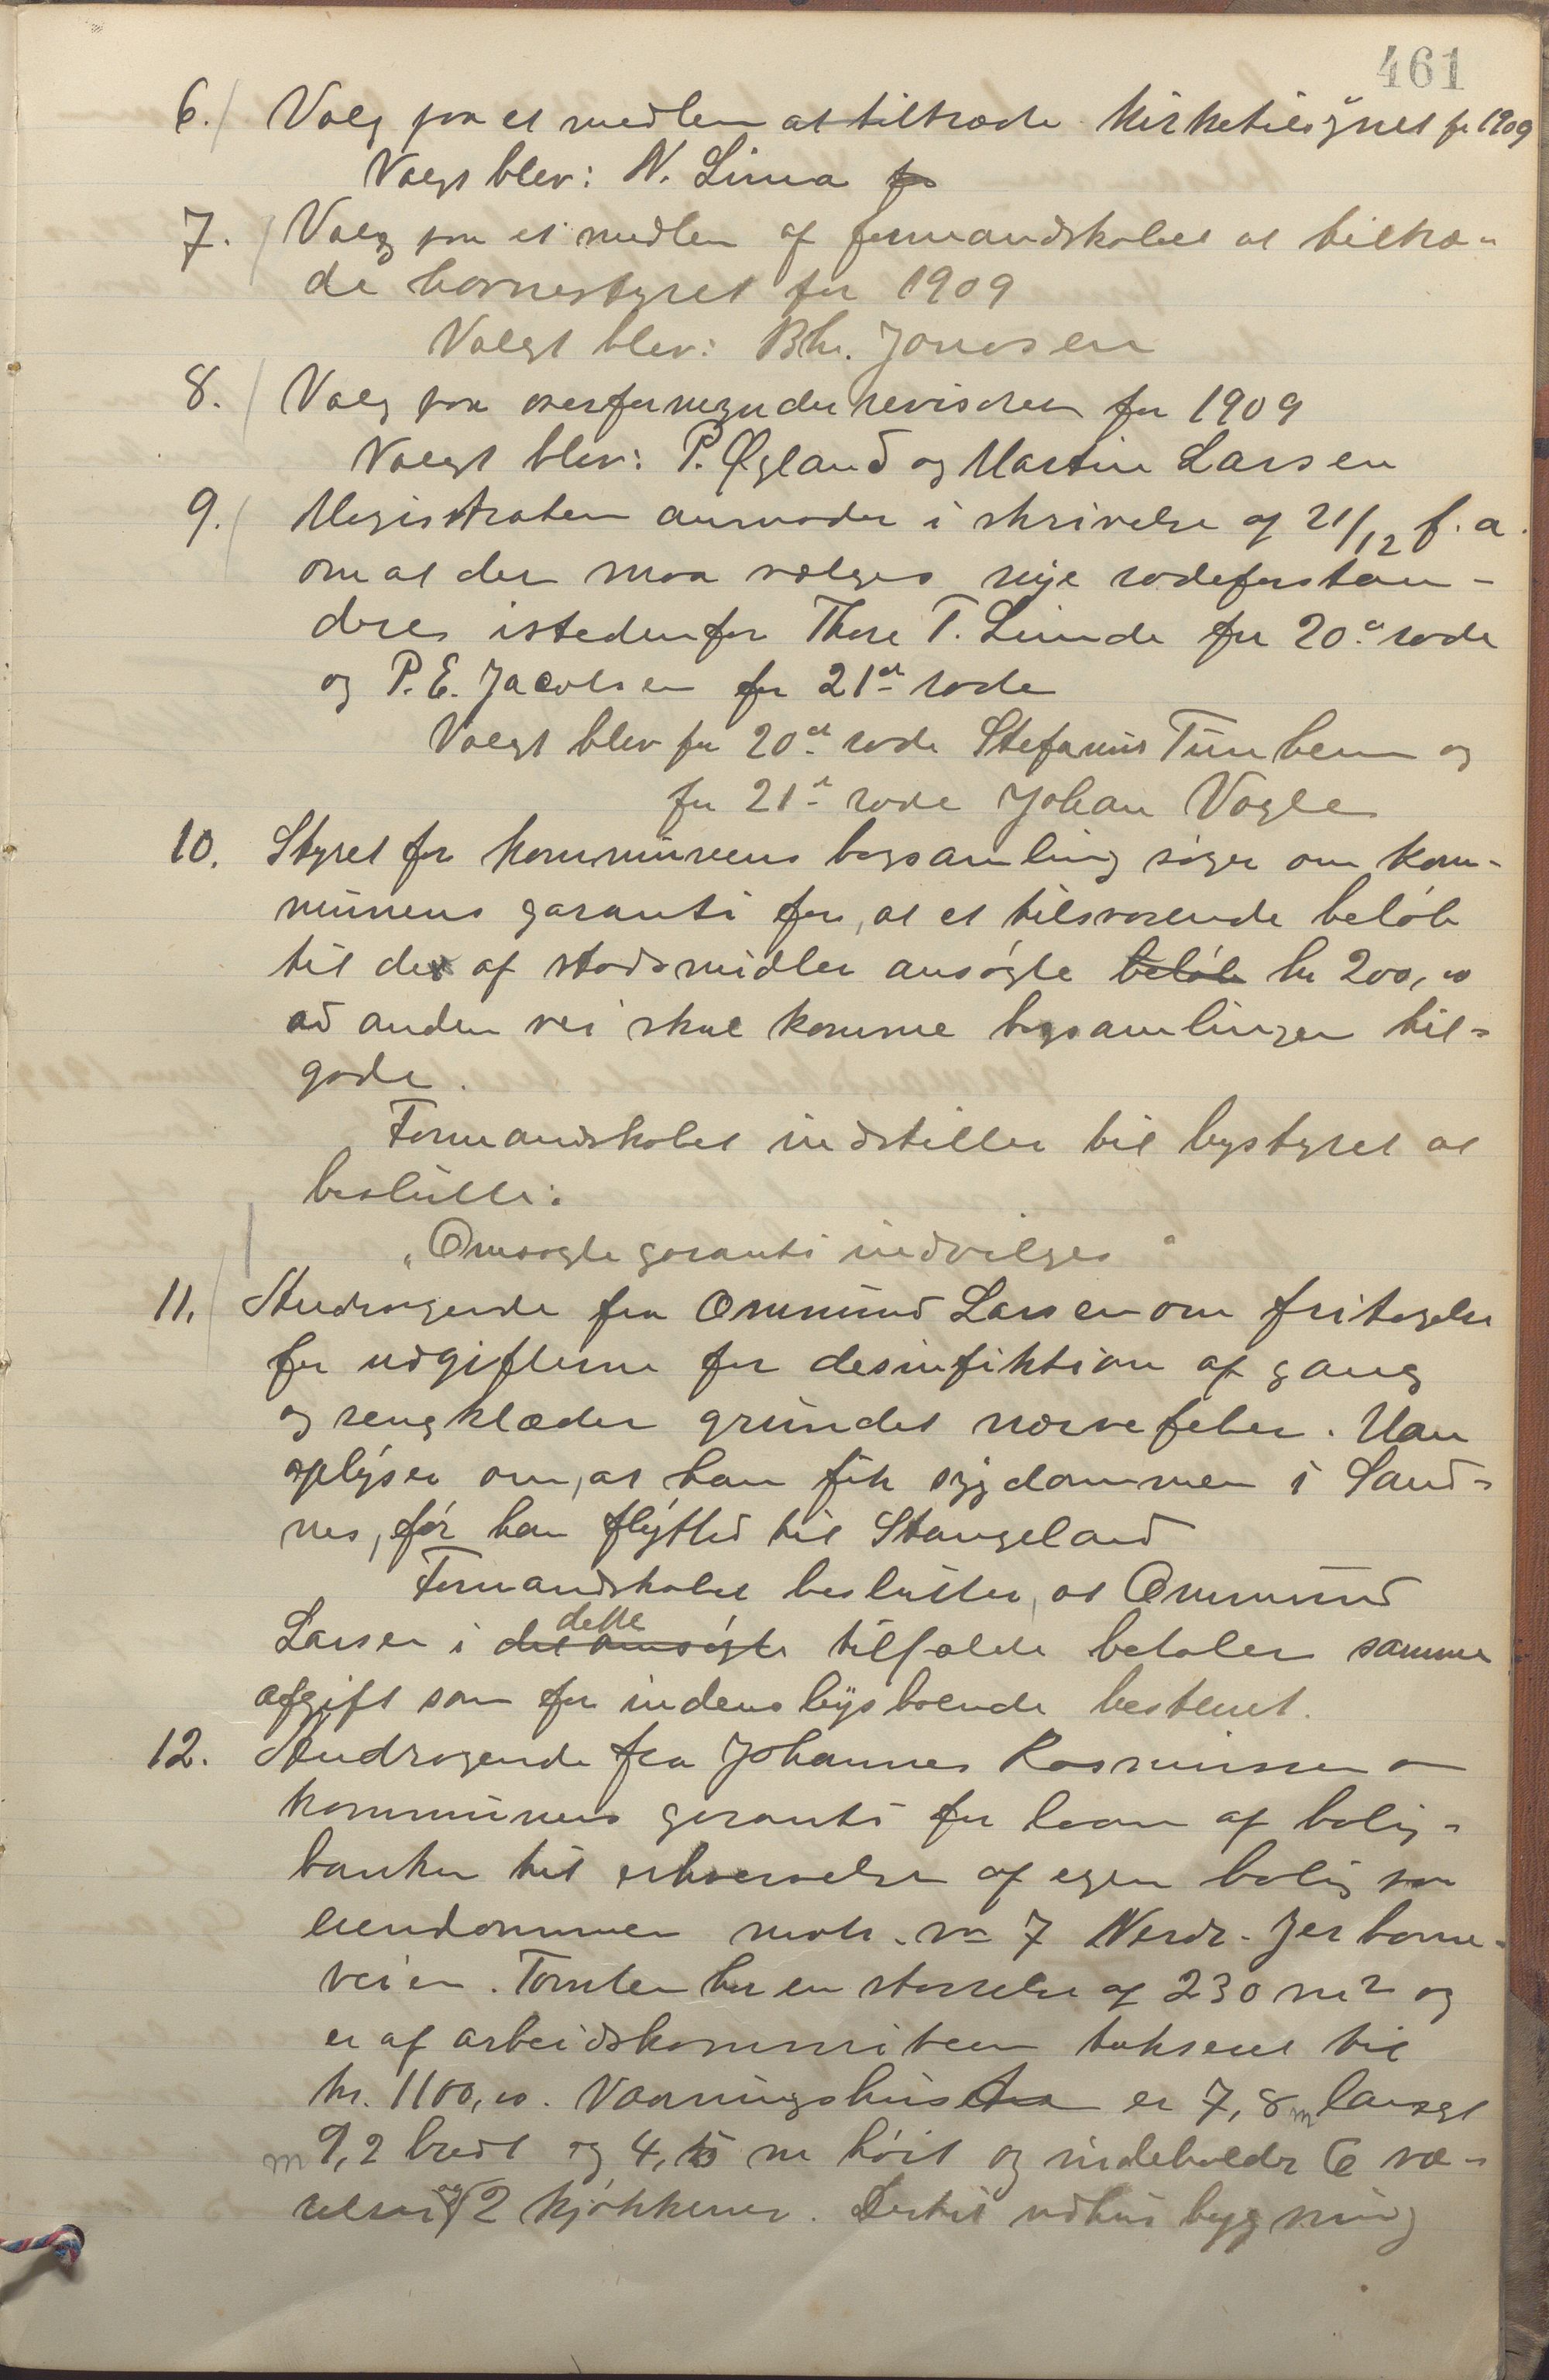 461
6. Valg paa et medlem at tiltræde kirketilsynet for 1909
Valgt blev: N. Lima for
7. Valg paa et medlem af formandskabet at tiltræ-
de havnestyret for 1909
Valgt blev: Bh. Jonassen
8. Valg paa overformynderrevisorer for 1909
Valgt blev: P. Øgland og Martin Larsen
9. Magistraten anmoder i skrivelse af 21/12 f. a.
om at der maa vælges nye rodeforstan-
dere istedenfor Thore T. Lunde for 20de rode
og P. E. Jacobsen for 21de rode
Valgt blev for 20de rode Stefanus Tunheim og
for 21de rode Johan Vagle
10. Styret for kommunens bogsamling søger om kom-
munens garanti for, at et tilsvarende beløb
til de af statsmidler ansøgte beløb kr 200,00
ad anden vei skal komme bogsamlingen til-
gode.
Formandskabet indstiller til bystyret at
beslutte:
"Omsøgte garanti indvilges"
11. Andragende fra Ommund Larsen om fritagelse
for udgifterne for desinfiktion af gang
og sengklæder grundet nervefeber. Han
oplyser om, at han fik sygdommen i Sand-
nes, før han flyttet til Stangeland
Formandskabet beslutter, at Ommund
dette
Larsen i det omsøgte tilfælde betaler samme
afgift som for indenbysboende bestemt.
12. Andragende fra Johannes Rasmussen om
kommunens garanti for laan af bolig-
banken til erhvervelse af egen bolig paa
eiendommen matr. no 7 Nerdr. Jerbane-
veien. Tomten har en størrelse af 230 m2 og
er af arbeidskommiteen takseret til
kr. 1100,00. Vaaningshuset er 7,8 m langt
m 9,2 bredt og 4,5 m høit og indeholder 6 væ-
relser og 2 kjøkkener. Dertil udhusbygning